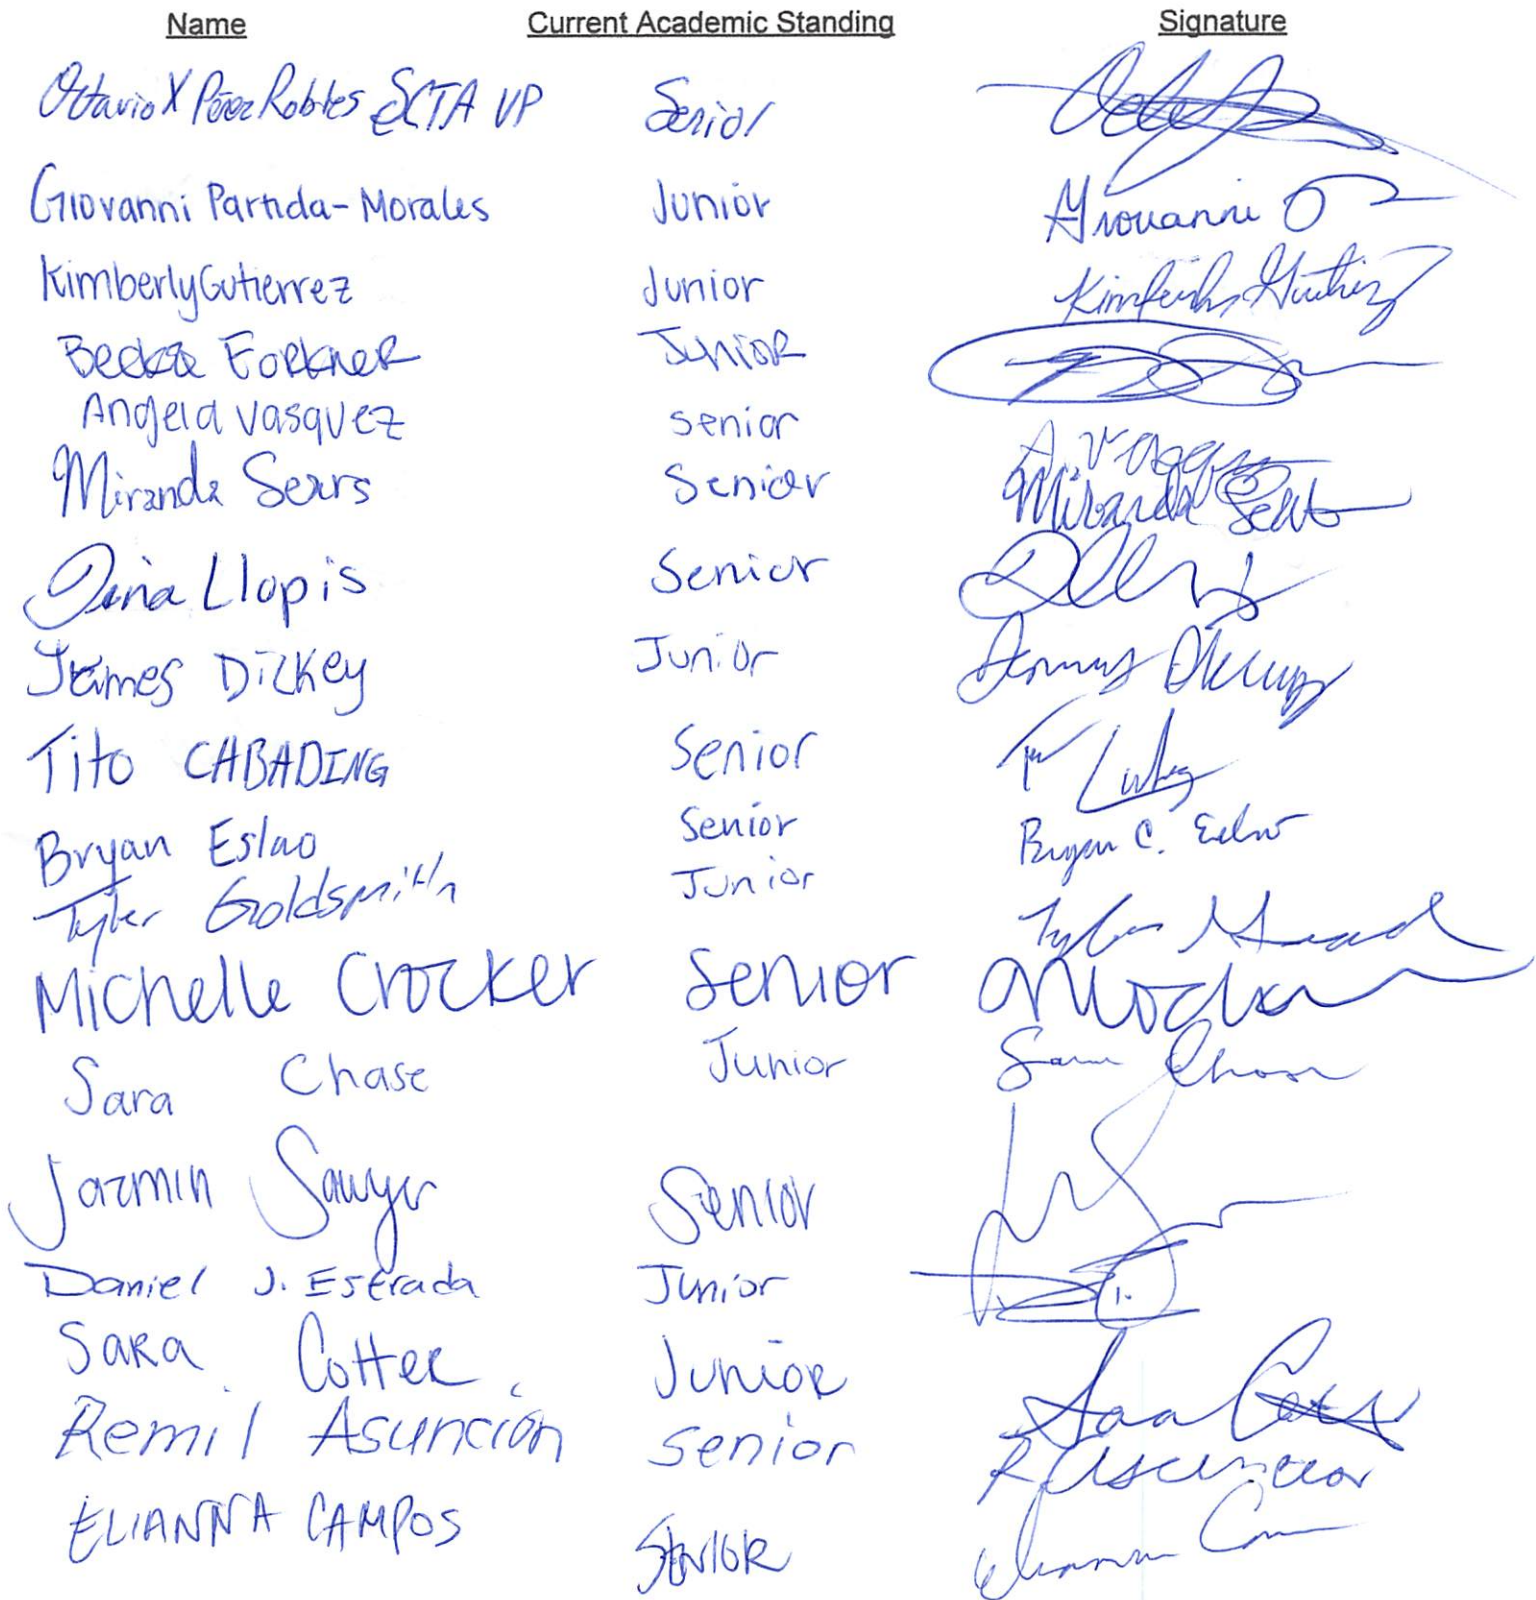 Name Current Academic Standing Signature
Octavio X Pérez Robles SCTA VP Senior
Giovanni Partida-Morales Junior Giovanni
Kimberly Gutierrez Junior Kimberly Gutierrez
Forkner Junior
Angela Vasquez senior A Vasquez
Miranda Sears Senior Miranda Sears
Dina Llopis Senior
James Dickey Junior James Dickey
Tito CABADING Senior
Bryan Eslao Senior Bryan C. Eslao
Tyler Goldsmith Junior Tyler
Michelle Crocker Senior MCrocker
Sara Chase Junior Sara Chase
Jazmin Sawyer Senior
Daniel J. Estrada Junior
Sara Cotter Junior Sara Cotter
Remil Asunción Senior R Asuncion
ELIANNA CAMPOS SENIOR Elianna